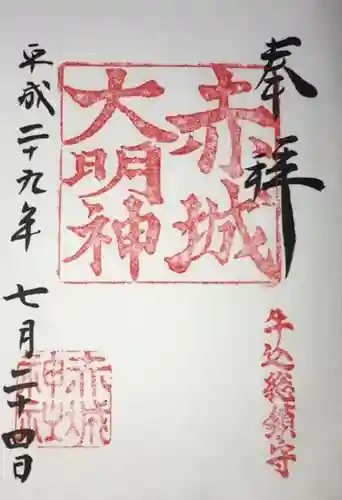 奉拝
牛込總鎮守
赤城
大明神
赤城
神社
平成二十九年
七月二十四日